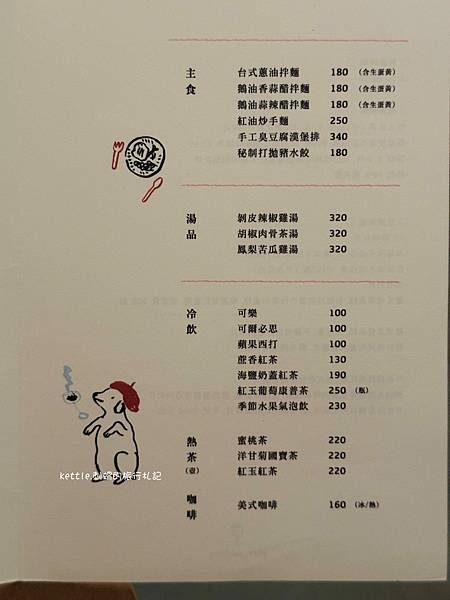 主食
台式蔥油拌麵 180 (含生蛋黃)
鵝油香蒜醋拌麵 180 (含生蛋黃)
鵝油蒜辣醋拌麵 180 (含生蛋黃)
紅油炒手麵 250
手工臭豆腐漢堡排 340
秘制打拋豬水餃 180
湯品
剝皮辣椒雞湯 320
胡椒肉骨茶湯 320
鳳梨苦瓜雞湯 320
冷飲
可樂 100
可爾必思 100
蘋果西打 100
蔗香紅茶 130
海鹽奶蓋紅茶 190
紅玉葡萄康普茶 250 (瓶)
季節水果氣泡飲 230
熱茶 (壺)
蜜桃茶 220
洋甘菊國寶茶 220
紅玉紅茶 220
kettle.的旅行札記
咖啡
美式咖啡 160 (冰/熱)